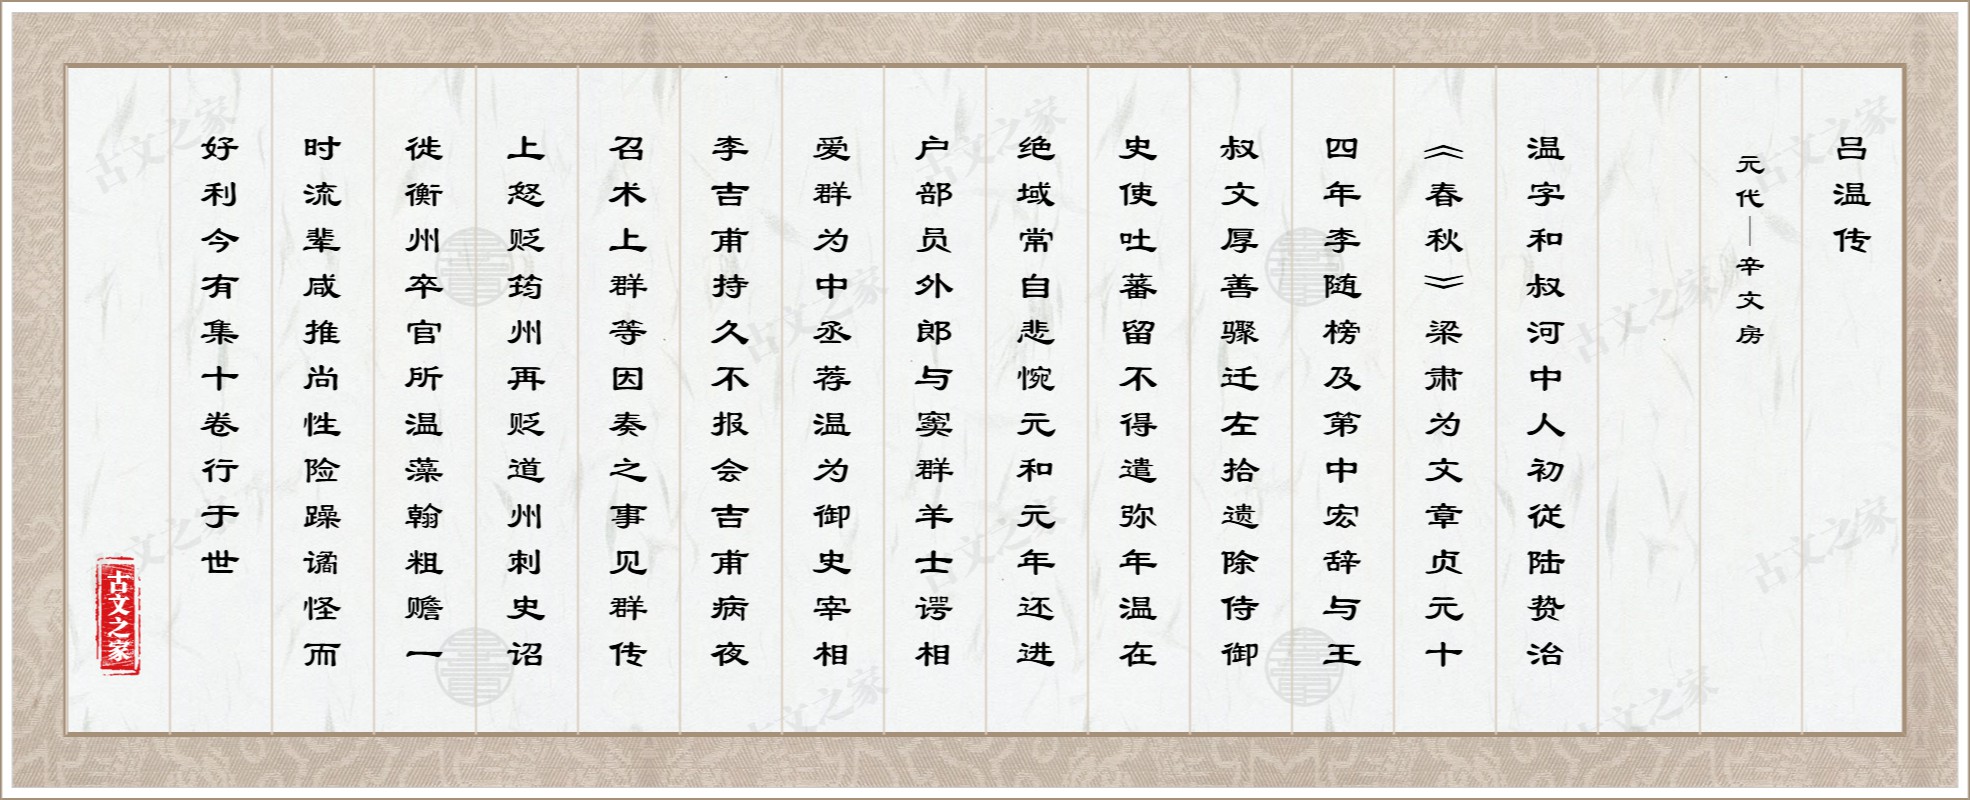 吕温传
元代—辛文房
温字和叔河中人初从陆贽治
《春秋》梁肃为文章贞元十
四年李随榜及第中宏辞与王
叔文厚善骤迁左拾遗除侍御
史使吐蕃留不得遣弥年温在
绝域常自悲惋元和元年还进
户部员外郎与窦群羊士谔相
爱群为中丞荐温为御史宰相
李吉甫持久不报会吉甫病夜
召术上群等因奏之事见群传
上怒贬筠州再贬道州刺史诏
徙衡州卒官所温藻翰粗赡一
时流辈咸推尚性险躁谲怪而
好利今有集十卷行于世
古文之家